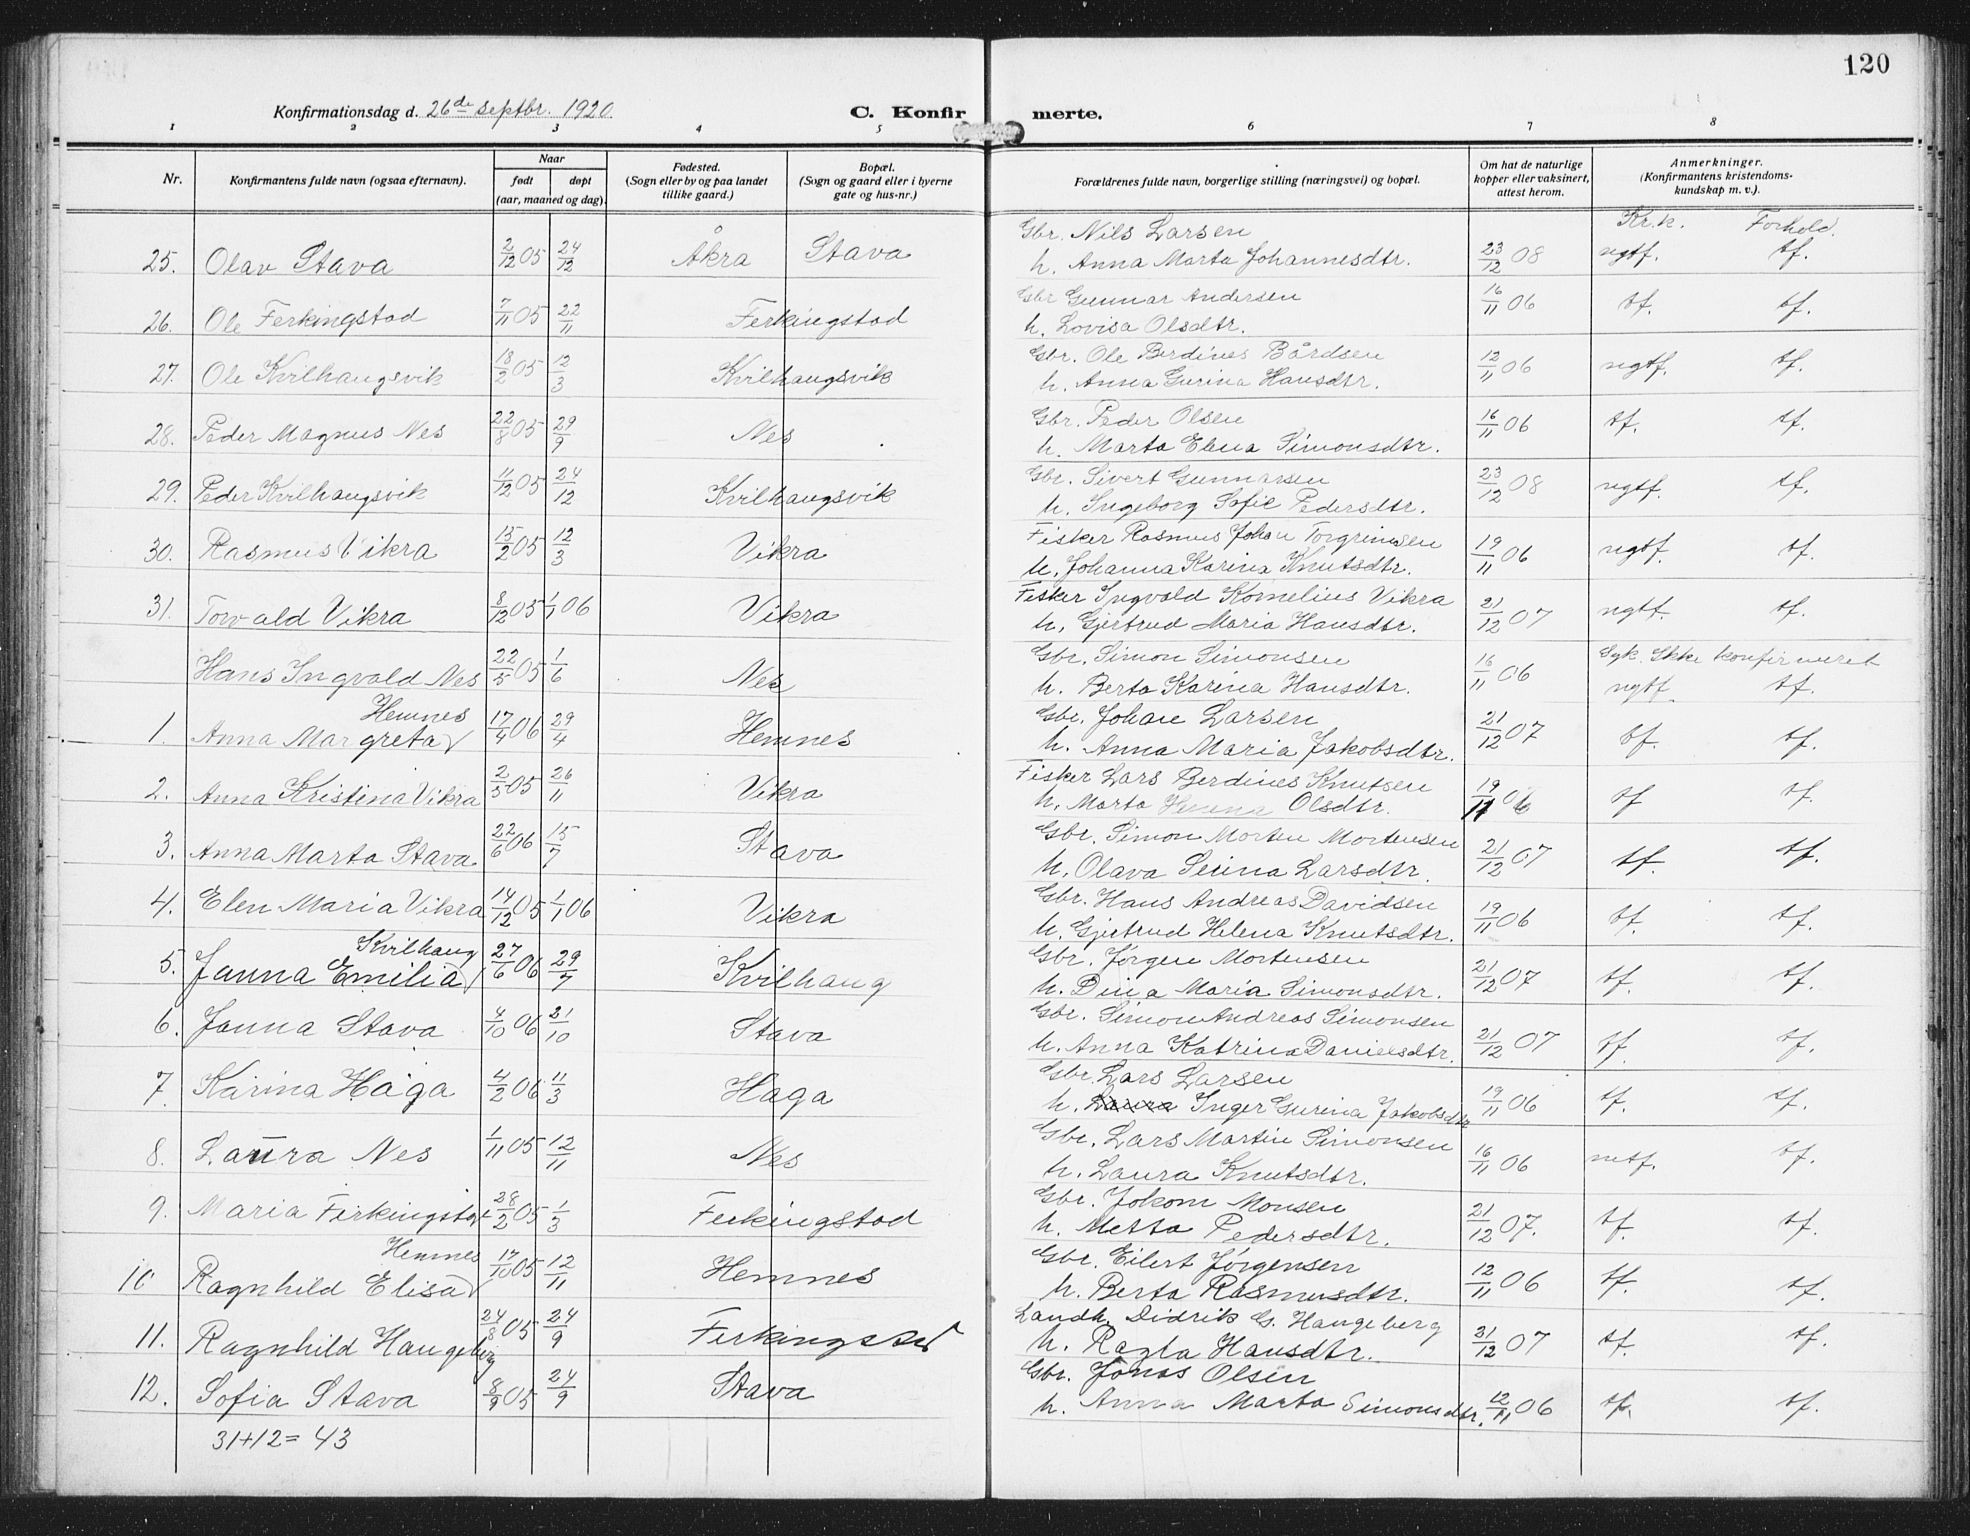 120
Konfirmationsdag d. 26de septbr. 1920. C. Konfirmerte.
1 2 3 4 5 6 7 8
Nr. Konfirmantens fulde navn (ogsaa efternavn). Naar født døpt (aar, maaned og dag). Fødested. (Sogn eller by og paa landet tillike gaard.) Bopæl. (Sogn og gaard eller i byerne gate og hus-nr.) Forældrenes fulde navn, borgerlige stilling (næringsvei) og bopæl. Om hat de naturlige kopper eller vaksinert, attest herom. Anmerkninger. (Konfirmantens kristendomskundskap m. v.).
Kr.k. Forhold.
25. Olav Stava 2/12 05 24/12 Åkra Stava Gbr. Nils Larsen h. Anna Marta Johannesdtr. 23/12 08 ngtf. tf.
26. Ole Ferkingstad 7/11 05 22/11 Ferkingstad Gbr Gunnar Andersen h. Lovisa Olsdtr. 16/11 06 tf. tf.
27. Ole Kvilhaugsvik 18/2 05 12/3 Kvilhaugsvik Gbr. Ole Berdines Bårdsen h. Anna Gurina Hansdtr. 12/11 06 ngtf. tf.
28. Peder Magnus Nes 22/8 05 29/9 Nes Gbr. Peder Olsen h. Marta Elena Simonsdtr. 16/11 06 tf. tf.
29. Peder Kvilhaugsvik 11/12 05 24/12 Kvilhaugsvik Gbr. Sivert Gunnarsen h. Ingeborg Sofie Pedersdtr. 23/12 08 ngtf. tf.
30. Rasmus Vikra 15/2 05 12/3 Vikra Fisker Rasmus Johan Torgrimsen h. Johanna Karina Knutsdtr. 19/11 06 ngtf. tf.
31. Torvald Vikra 8/12 05 1/1 06 Vikra Fisker Ingvald Kornelius Vikra h. Gjertrud Maria Hansdtr. 21/12 07 ngtf. tf.
Hans Ingvald Nes 22/5 05 1/6 Nes Gbr. Simon Simonsen h. Berta Karina Hansdtr. 16/11 06 Syk. Ikke konfirmeret ngtf. tf.
1. Anna Margreta Hemnes 17/4 06 29/4 Hemnes Gbr. Johan Larsen h. Anna Maria Jakobsdtr. 21/12 07 tf. tf.
2. Anna Kristina Vikra 2/5 05 26/11 Vikra Fisker Lars Berdines Knutsen h. Marta Olsdtr. 19/11 06 tf tf.
3. Anna Marta Stava 22/6 06 15/7 Stava Gbr. Simon Morten Mortensen h. Olava Serina Larsdtr. 21/12 07 tf. tf.
4. Elen Maria Vikra 14/12 05 1/1 06 Vikra Gbr. Hans Andreas Davidsen h. Gjertrud Helena Knutsdtr. 19/11 06 tf. tf.
5. Janna Emilia Kvilhaug 27/6 06 29/7 Kvilhaug Gbr. Jørgen Mortensen h. Dina Maria Simonsdtr. 21/12 07 tf. tf.
6. Janna Stava 4/10 06 21/10 Stava Gbr. Simon Andreas Simonsen h. Anna Katrina Danielsdtr. 21/12 07 tf. tf.
7. Karina Håga 4/2 06 11/3 Haga Gbr. Lars Larsen h. Laura Inger Gurina Jakobsdtr 19/11 06 tf. tf.
8. Laura Nes 1/11 05 12/11 Nes Gbr. Lars Martin Simonsen h. Laura Knutsdtr. 16/11 06 mtf. tf.
9. Maria Ferkingstad 28/2 05 1/3 Ferkingstad Gbr. Jokom Monsen h. Metta Pedersdtr. 21/12 07. tf. tf.
10 Ragnhild Elisa Hemnes 17/10 05 12/11 Hemnes Gbr. Eilert Jørgensen h. Berta Rasmusdtr. 12/11 06 tf. tf.
11. Ragnhild Haugeberg 24/8 05 24/9 Ferkingstad Landh. Didrik G. Haugeberg h. Ragla Hansdtr. 21/12 07 tf. tf.
12. Sofia Stava 8/9 05 24/9 Stava Gbr. Jonas Olsen h. Anna Marta Simonsdtr. 12/11 06 tf. tf.
31+12= 43